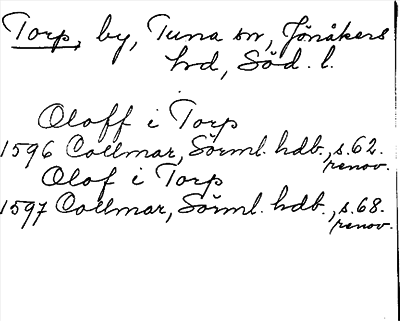 Torp, by, Tuna sn, Jönåkers
hd, Söd. l.
Oloff i Torp
1596 Collmar, Sörml. hdb., s. 62.
renov.
Olof i Torp
1597 Collmar, Sörml. hdb., s. 68.
renov.